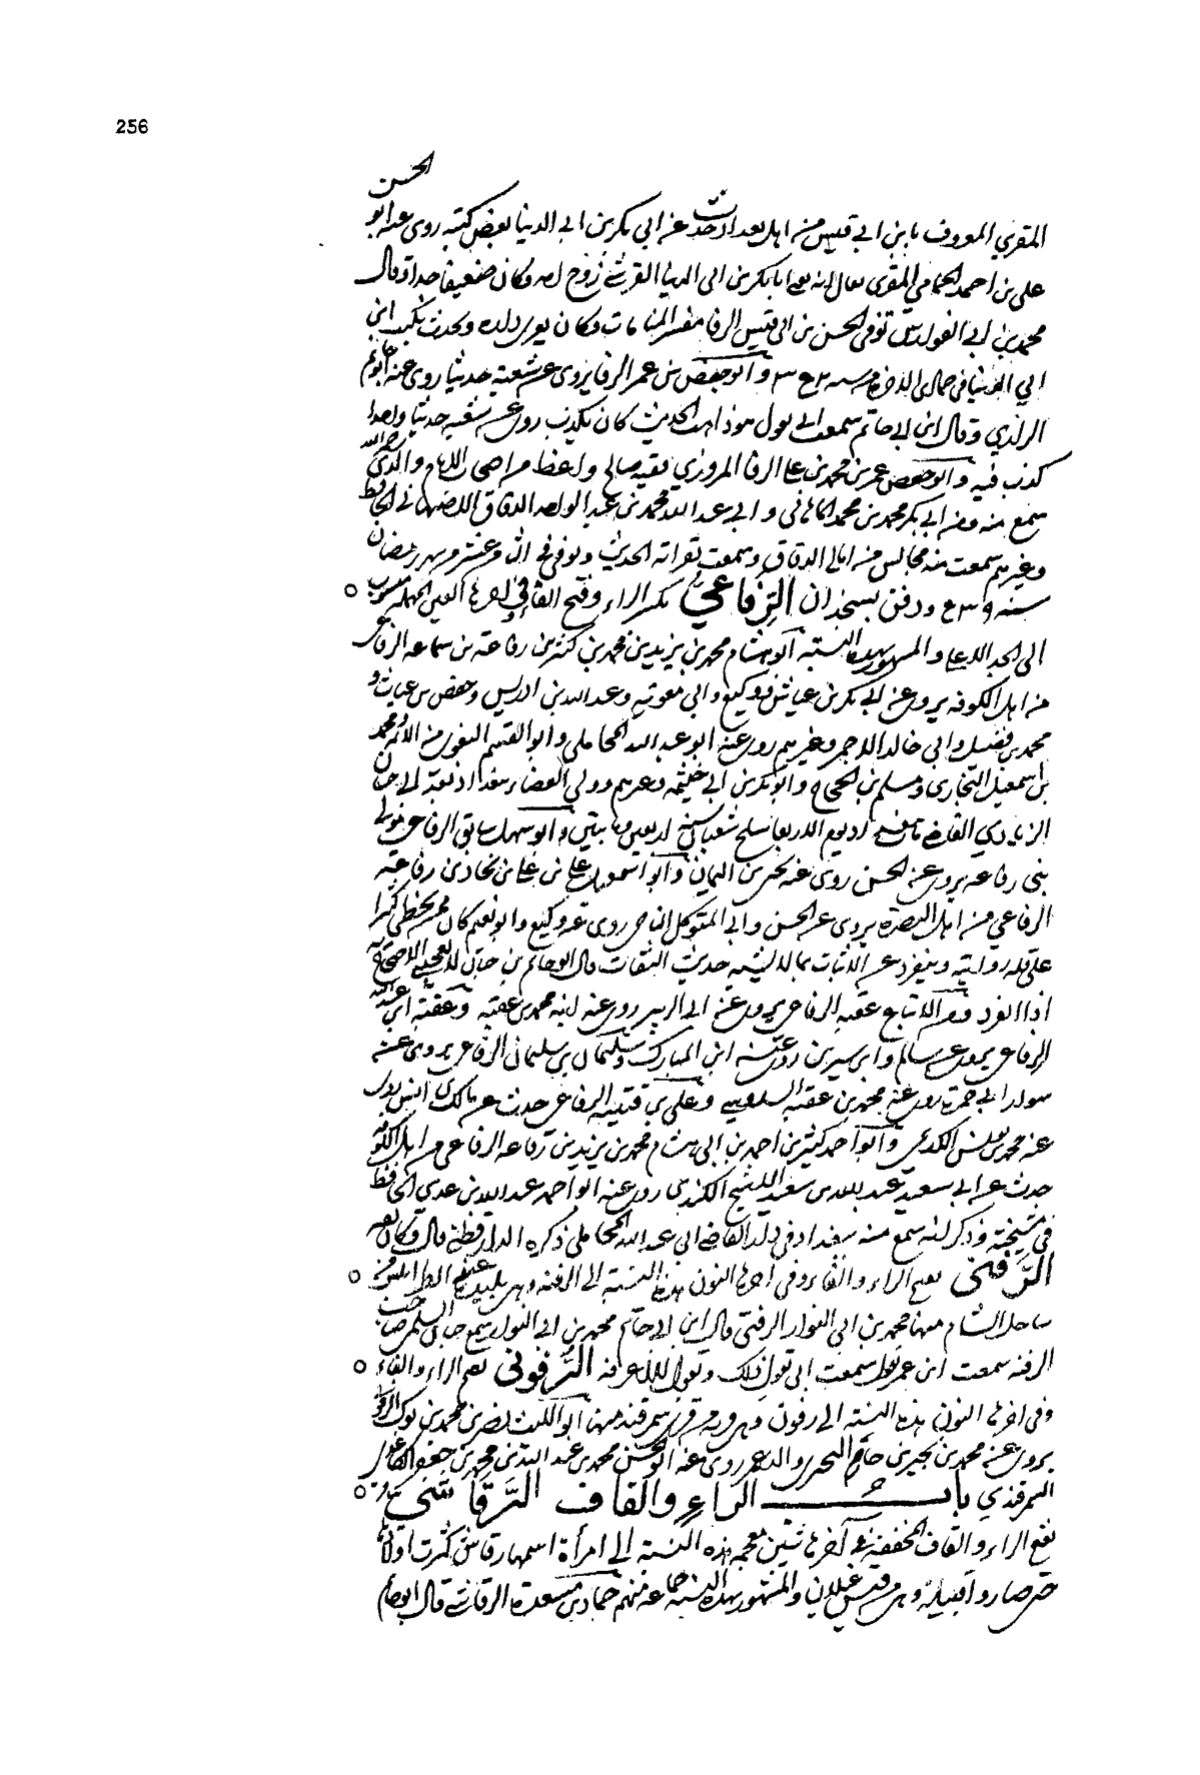 256
الحسن
المقري المعروف بابن ابي قيس من اهل بغداد حدث عن ابي بكر بن ابي الدنيا بعض كتبه روى عنه ابو
على بن احمد الحمامي المقرى يقال انه ابا بكر بن ابى الدنيا القرشي زوج امه وكان ضعيفا جدا وقال
محمد بن ابي الفوارس توفى الحسن بن ابى قيس الرفا مفسر المنامات وكان يورى ولده ويحدث بكتب ابن
ابي الدنيا في جمادى الاخرة من سنه وابو حفص بن عمر الرفا يروى عن شعبة حديثا روى عنه ابو حاتم
الرازي وقال ابن ابي حاتم سمعت ابي يقول هو ذاهب الحديث كان يكذب روى عن شعبه حديثا واحدا
كذب فيه وابو حفص عمر بن محمد بن على الرفا المروزي فقيه صالح واعظ من اصحاب الامام والدي رحمه الله
سمع منه ومن ابي بكر محمد بن محمد الماهاني وابي عبد الله محمد بن عبد الواحد الدقاق الاصبهاني الحافظ
وغيرهم سمعت منه مجالس من امالى الدقاق وسمعت بقراته الحديث وتوفى في الثاني وعشر من شهر رمضان
سنه ودفن بسنجذان الرفاعي بكسر الراء وفتح الفاء وفي اخرها العين المهملة منسوب
الى الجد الاعلى والمشهور بهذه النسبة ابو هشام محمد بن يزيد بن محمد بن كثير بن رفاعة بن سماعه الرفاعي
من اهل الكوفه يروى عن ابي بكر بن عياش ووكيع وابي معويه وعبد الله بن ادريس وحفص بن غياث و
محمد بن فضيل وابي خالد الاحمر وغيرهم روى عنه ابو عبد الله المحاملي وابو القسم البغوى من الائمه محمد
بن اسمعيل البخارى ومسلم بن الحجاج وابو بكر بن ابي خيثمه وغيرهم وولى القضاء ببغداد بعد ابي حسان
الزيادي القاضي يوم الاربعا سلخ شعبان سنه اربعين ومايتين وابو سهل سابق الرفاعي مولى
بنى رفاعه يروى عن الحسن روى عنه يحيى بن اليمان وابو اسمعيل علي بن علي بن نجاد بن رفاعة
الرفاعي من اهل البصره يروى عن الحسن وابي المتوكل الناجي روى عنه وكيع وابو نعيم كان ممن يخطي كثيرا
على قلة روايته وينفرد عن الاثبات بما لا يشبه حديث الثقات قال ابو حاتم بن حبان لا يعجبني الاحتجاج به
اذا انفرد ومن الاتباع عقبه الرفاعي يروى عن ابي الزبير روى عنه ابنه محمد بن عقبه وعقبة ابن عبد الله
الرفاعي يروى عن سالم وابن سيرين روى عنه ابن المبارك وسليمان بن سليمان الرفاعي يروى عن
سوار ابي حمزة روى عنه محمد بن عقبه السدوسي وعلي بن قتيبة الرفاعي حدث عن مالك بن انس روى
عنه محمد بن يونس الكديمي وابو احمد كثير بن احمد بن ابى هشام محمد بن يزيد بن رفاعه الرفاعي من اهل الكوفه
حدث عن ابي سعيد عبد الله بن سعيد الاشج الكندي روى عنه ابو احمد عبد الله بن عدي الحافظ
في مشيخته وذكر انه سمع منه ببغداد في دار القاضي ابى عبد الله المحاملى ذكره الدارقطني قال وكان ثقه
الرفني بفتح الراء والفاء وفي اخرها النون هذه النسبة الى الرفنه وهي بليدة عند اطرابلس من
ساحل الشام منها محمد بن ابى النوار الرفنى قال ابن ابي حاتم محمد بن ابى النوار سمع حبان السلمي صاحب
الرفنه سمعت ابن عمر يقول سمعت ابى يقول ذلك ويقول لا اعرفه الرفونى بضم الراء والفاء
وفي اخرها النون هذه النسبه الى رفون وهي من قرى سمرقند منها ابو الليث نصر بن محمد بن بوك الرفونى
يروى عن محمد بن بجير بن حازم البحيرى والد عمر روى عنه ابو الحسن محمد بن عبد الله بن محمد بن جعفر الكاغذى
السمرقندي باب الراء والقاف الرقاشي
بفتح الراء والقاف المخففة في آخرها شين معجمه هذه النسبة الى امرأة اسمها رقاش كثرت اولادها
حتى صاروا قبيلة وهي من قيس عيلان والمشهور بهذه النسبه جماعة منهم حماد بن مسعدة الرقاشي قال ابو حاتم